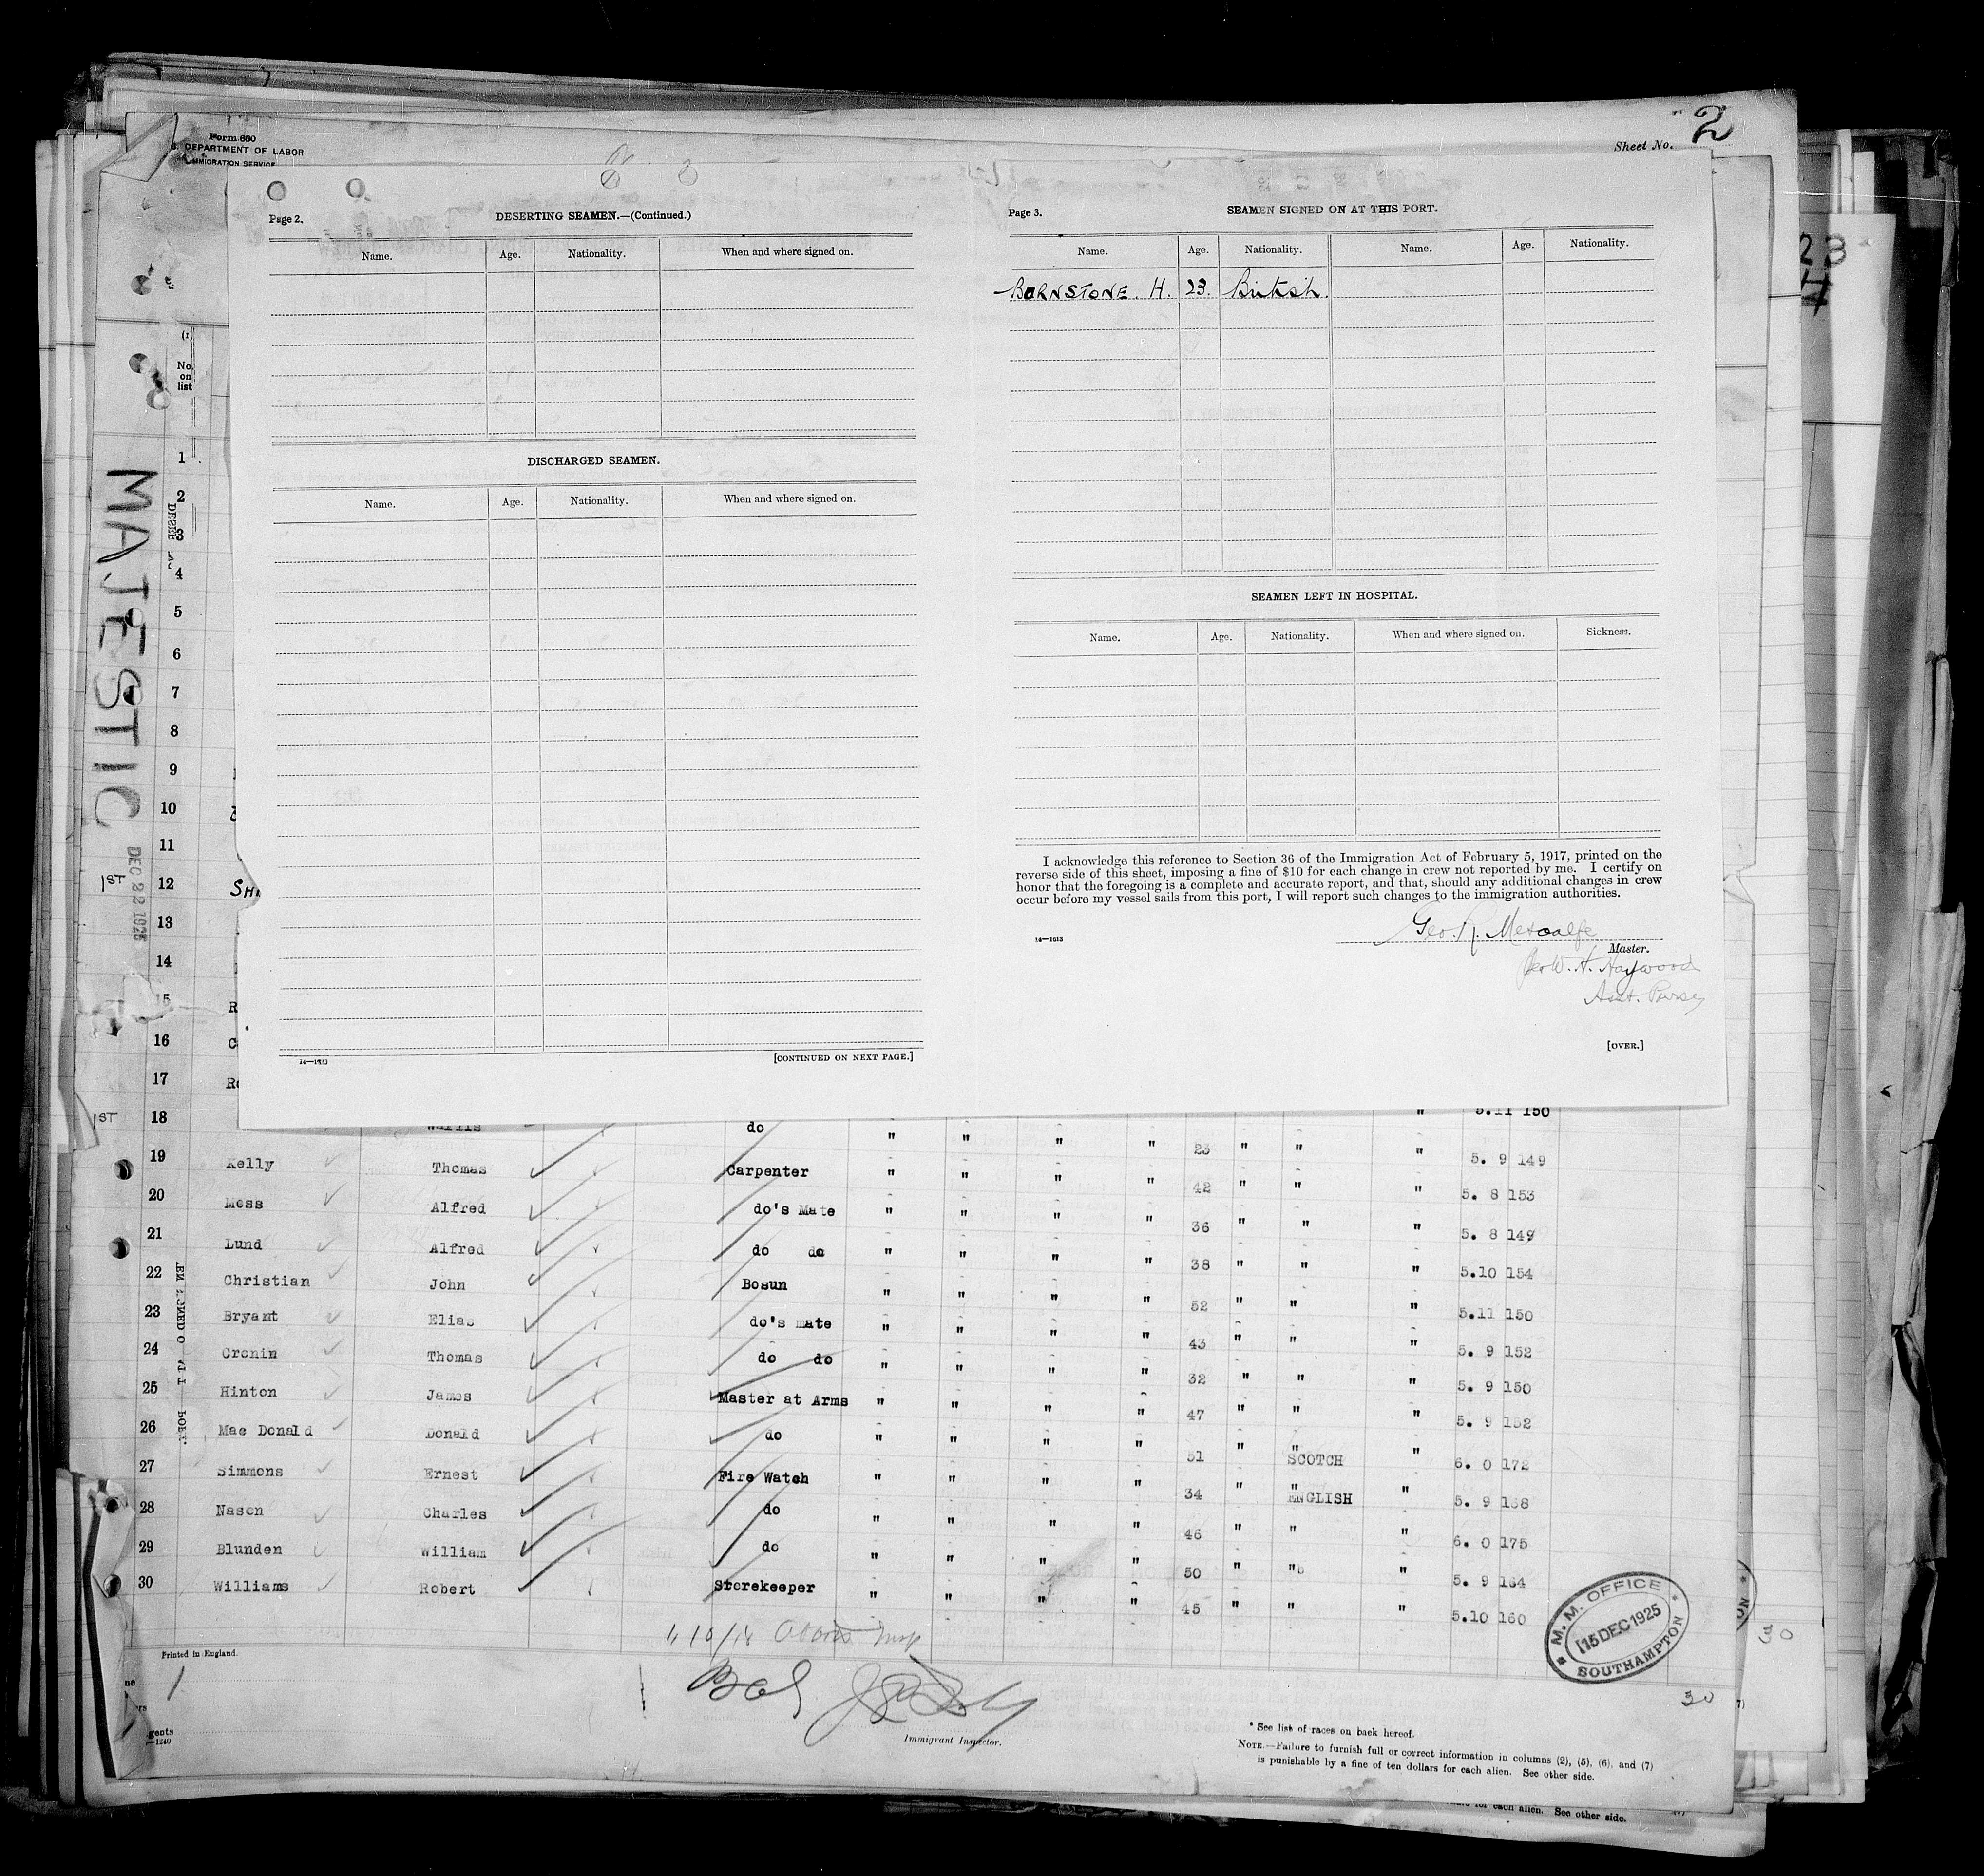 Form 690
DEPARTMENT OF LABOR
IMMIGRATION SERVICE
Sheet No. 2
Page 2.
DESERTING SEAMEN.—(Continued.)
Name. Age. Nationality. When and where signed on.
DISCHARGED SEAMEN.
Name. Age. Nationality. When and where signed on.
14—1613
[CONTINUED ON NEXT PAGE.]
Page 3.
SEAMEN SIGNED ON AT THIS PORT.
Name. Age. Nationality. Name. Age. Nationality.
BORNSTONE. H. 23. British.
SEAMEN LEFT IN HOSPITAL.
Name. Age. Nationality. When and where signed on. Sickness.
I acknowledge this reference to Section 36 of the Immigration Act of February 5, 1917, printed on the
reverse side of this sheet, imposing a fine of $10 for each change in crew not reported by me. I certify on
honor that the foregoing is a complete and accurate report, and that, should any additional changes in crew
occur before my vessel sails from this port, I will report such changes to the immigration authorities.
14—1613
Geo. R. Metcalfe
Master.
Per W. H. Haywood
Asst. Purser
[OVER.]
MAJESTIC
DEC 22 1925
(1)
No.
on
list
1
2
3
4
5
6
7
8
9
10
11
1ST 12
13
14
15
16
17
1ST 18 Wallis do " " " " 23 " " " 5.11 150
19 Kelly Thomas Carpenter " " " " 42 " " " 5. 9 149
20 Moss Alfred do's Mate " " " " 36 " " " 5. 8 153
21 Lund Alfred do do " " " " 38 " " " 5. 8 149
22 Christian John Bosun " " " " 52 " " " 5.10 154
23 Bryant Elias do's mate " " " " 43 " " " 5.11 150
24 Cronin Thomas do do " " " " 32 " " " 5. 9 152
25 Hinton James Master at Arms " " " " 47 " " " 5. 9 150
26 Mac Donald Donald do " " " " 51 " SCOTCH " 5. 9 152
27 Simmons Ernest Fire Watch " " " " 34 " ENGLISH " 6. 0 172
28 Nason Charles do " " " " 46 " " " 5. 9 168
29 Blunden William do " " " " 50 " " " 6. 0 175
30 Williams Robert Storekeeper " " " " 45 " " " 5. 9 164
5.10 160
M. M. OFFICE
15 DEC 1925
SOUTHAMPTON
Printed in England.
30
Immigrant Inspector.
* See list of races on back hereof.
NOTE.—Failure to furnish full or correct information in columns (2), (5), (6), and (7)
is punishable by a fine of ten dollars for each alien. See other side.
for each alien. See other side.